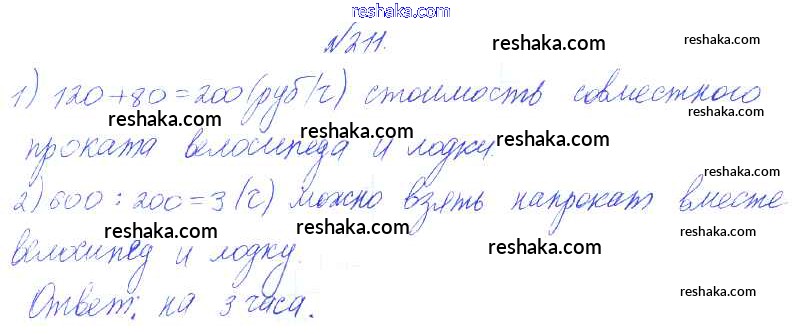 reshaka.com
№211.
reshaka.com
reshaka.com
1) 120+80=200 (руб/ч) стоимость совместного
reshaka.com
reshaka.com
reshaka.com
проката велосипеда и лодки.
reshaka.com
reshaka.com
2) 600:200=3 (ч) можно взять напрокат вместе
reshaka.com
reshaka.com
reshaka.com
велосипед и лодку.
reshaka.com
Ответ: на 3 часа.
reshaka.com